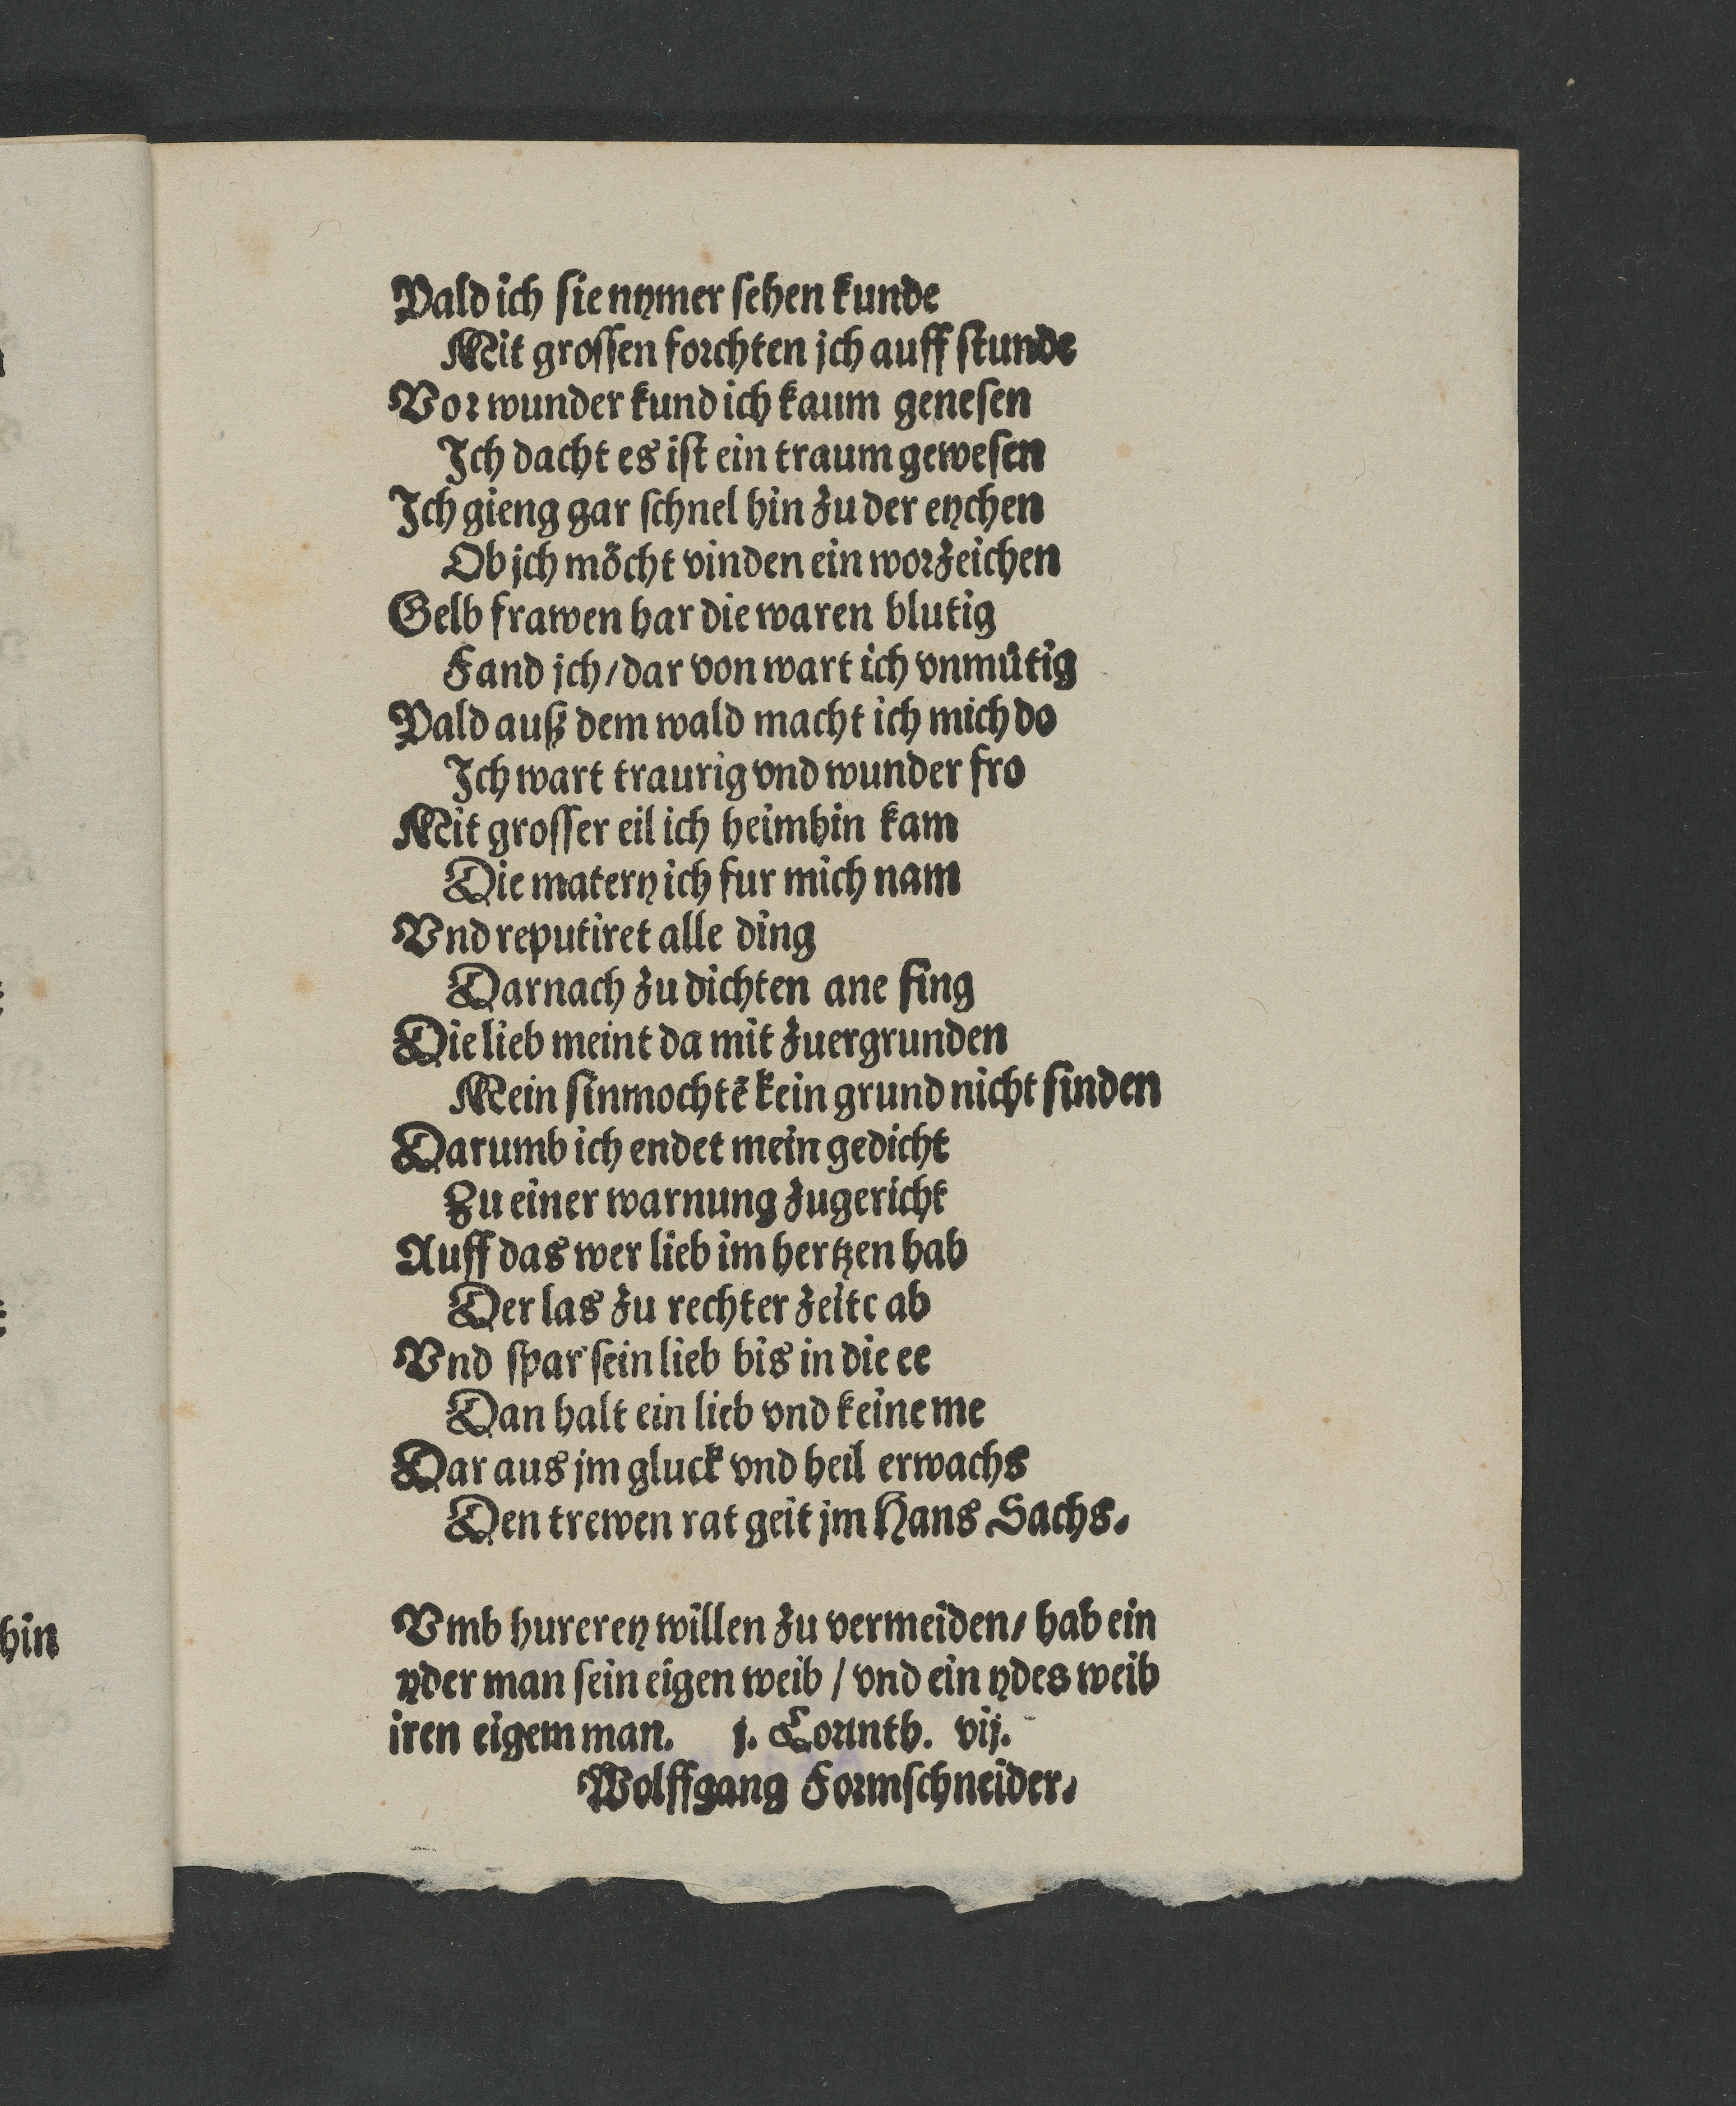 Pald ich sie nymer sehen kunde
Mit grossen forchten jch auff stunde
Vor wunder kund ich kaum genesen
Ich dacht es ist ein traum gewesen
Ich gieng gar schnel hin zu der eychen
Ob jch möcht vinden ein worzeichen
Gelb frawen har die waren blutig
Fand jch / dar von wart ich vnmütig
Pald auß dem wald macht ich mich do
Ich wart traurig vnd wunder fro
Mit grosser eil ich heimhin kam
Die matery ich fur mich nam
Vnd reputiret alle ding
Darnach zu dichten ane fing
Die lieb meint da mit zuergrunden
Mein sinmochtē kein grund nicht finden
Darumb ich endet mein gedicht
Zu einer warnung zugericht
Auff das wer lieb im hertzen hab
Der las zu rechter zeitc ab
Vnd spar sein lieb bis in die ee
Dan halt ein lieb vnd keine me
Dar aus jm gluck vnd heil erwachs
Den trewen rat geit jm Hans Sachs.
Vmb hurerey willen zu vermeiden / hab ein
yder man sein eigen weib / vnd ein ydes weib
iren eigem man. j. Corinth. vij.
Wolffgang Formschneider.
hin